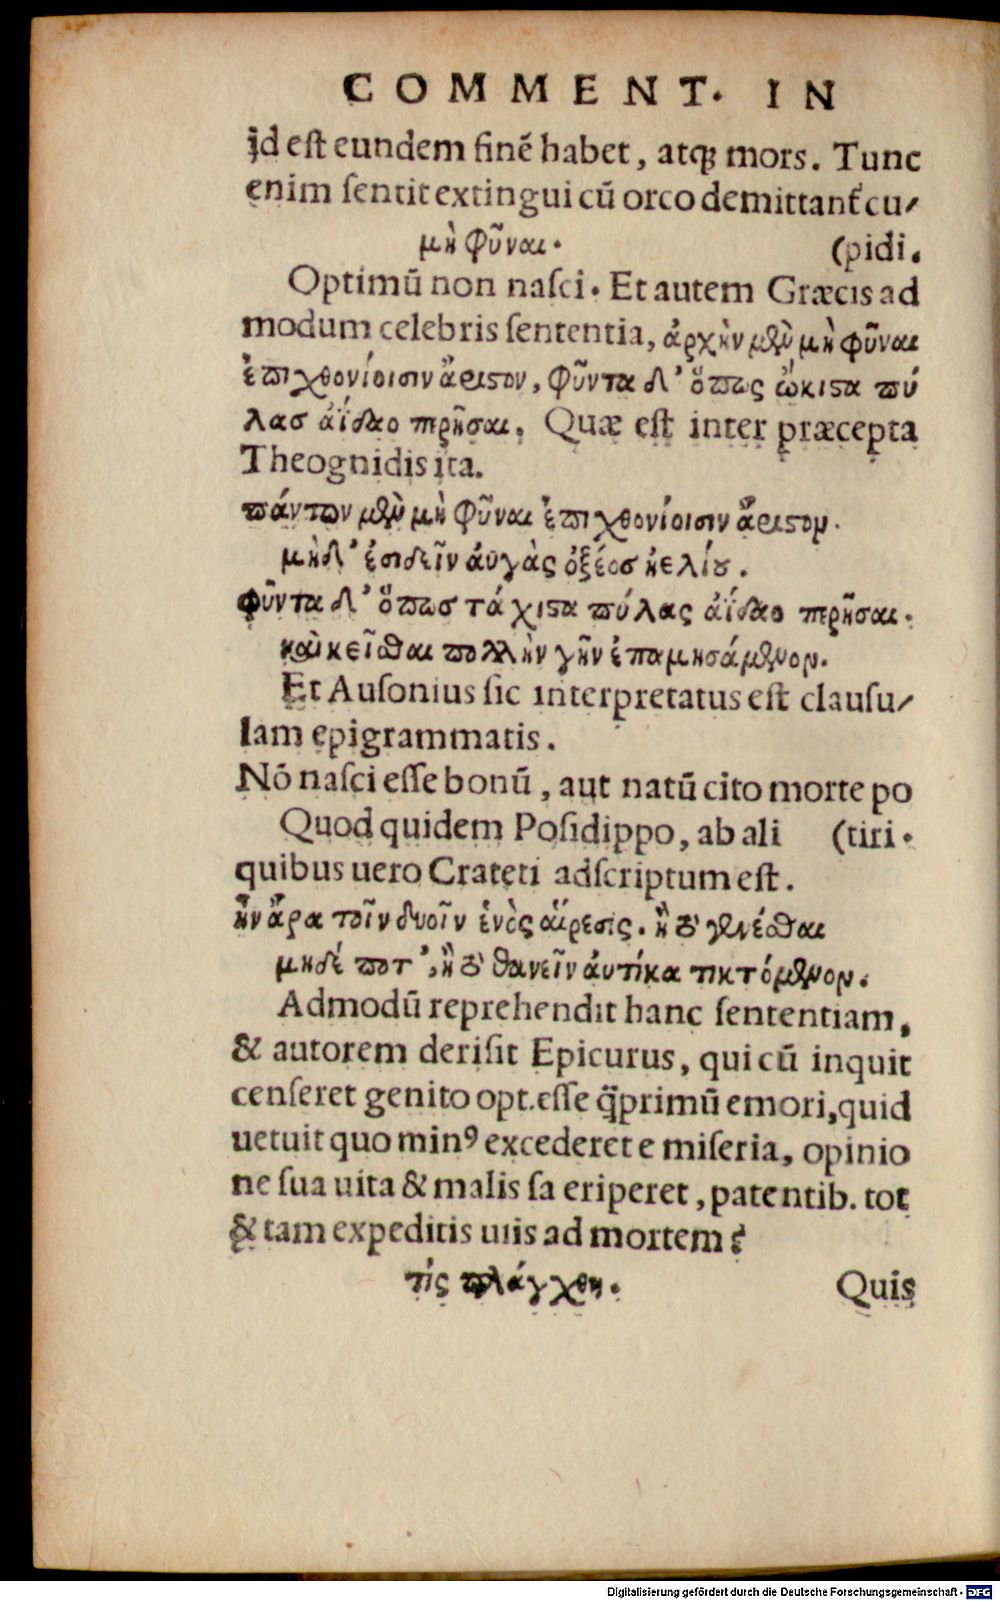 COMMENT. IN
id est eundem finē habet, atqꝫ mors. Tunc
enim sentit extingui cū orco demittant᷑ cu/
μὴ φῦναι. (pidi.
Optimū non nasci. Et autem Græcis ad
modum celebris sententia, ἀρχὴν μὲν μὴ φῦναι
ἐπιχθονίοισιν ἄριστον, φῦντα δ' ὅπως ὤκιστα πύ
λασ ἀΐδαο περῆσαι. Quæ est inter præcepta
Theognidis ita.
πάντων μὲν μὴ φῦναι ἐπιχθονίοισιν ἄριστον.
μὴδ' ἐσιδεῖν ἀυγὰς ὀξέοσ ἠελίου.
φῦντα δ' ὅπωσ τάχιστα πύλας ἀΐδαο περῆσαι.
καὶ κεῖσθαι πολλὴν γῆν ἐπαμησάμενον.
Et Ausonius sic interpretatus est clausu/
lam epigrammatis.
Nō nasci esse bonū, aut natū cito morte po
Quod quidem Posidippo, ab ali (tiri.
quibus uero Crateti adscriptum est.
ἦν ἄρα τοῖν δυοῖν ἑνὸς αἵρεσις. ἢ τὸ γενέσθαι
μηδέ ποτ', ἢ τὸ θανεῖν ἀυτίκα τικτόμενον.
Admodū reprehendit hanc sententiam,
& autorem derisit Epicurus, qui cū inquit
censeret genito opt. esse q̃primū emori, quid
uetuit quo minꝰ excederet e miseria, opinio
ne sua uita & malis sa eriperet, patentib. tot
& tam expeditis uiis ad mortem?
τίς πλάγχθη. Quis
Digitalisierung gefördert durch die Deutsche Forschungsgemeinschaft - DFG